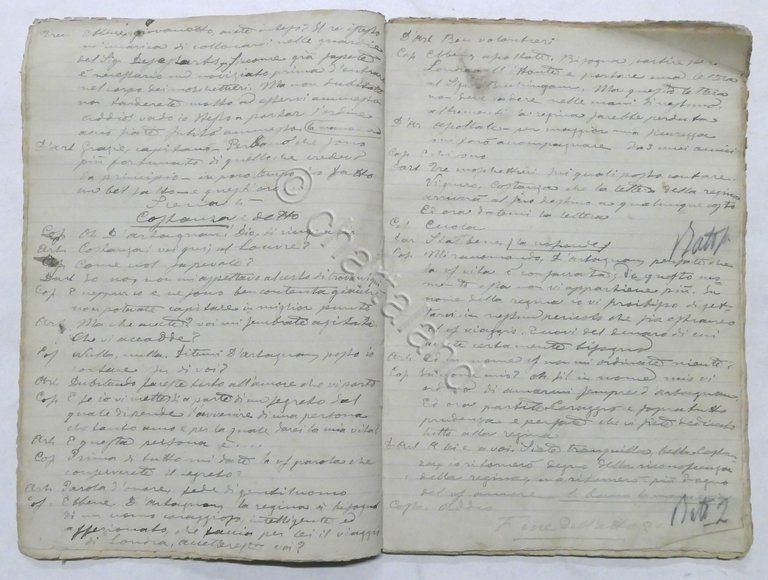 Tre Ebbene, giovanotto, avete inteso? Il re stesso
m'incarica di collocarvi nelle guardie
del Sig. Desessarts, siccome già sapete
è necessario un noviziato prima d'entrare
nel corpo dei moschettieri. Ma non dubitate
non tarderete molto ad esservi ammesso
addio; vado io stesso a portar l'ordine
acciò siate subito ammesso
D'Art Grazie, capitano. Perbacco che sono
più fortunato di quello che credevo
da principio - in poco tempo io fatto
un bel salto - e quest'oro
Scena 4
Costanza e detto
Cos Oh D'Artagnan! Dio, vi ringrazio
Art Costanza! voi qui, al Louvre?
Cos Come voi sapevate?
Dart Io no, non mi aspettavo al certo di
Cos E neppure io e ne sono ben contenta giacchè
non potevate capitare in miglior punto
Art Ma che avete? voi mi sembrate agitata
Che vi accadde?
Cos Nulla, nulla. Ditemi D'Artagnan, posso io
contare su di voi?
Art Dubitando fareste torto all'amore che vi porto
Cos E se io vi metto a parte di un segreto dal
quale dipende l'avvenire di una persona
che tanto amo e per la quale darei la mia vita?
Art E questa persona è....
Cos Prima di tutto mi date la vs parola che
conserverete il segreto?
Art Parola d'onore, fede di gentiluomo
Cos Ebbene D'Artagnan, la regina à bisogno
di un uomo coraggioso, intelligente ed
affezionato, che faccia per lei il viaggio
di Londra, accettereste voi?
D'Art Ben volentieri
Cos Ebbene ascoltate. Bisogna partire per
Londra all'istante e portare una lettera
al Sig. Buckingam. Ma questa lettera
non deve cadere nelle mani di nessuno
altrimenti la regina sarebbe perduta
D'Ar Ascoltate - per maggior mia sicurezza
io farò accompagnare da 3 miei amici
Cos E chi sono
Dart Tre moschettieri sui quali posso contare.
Vi giuro, Costanza che la lettera della regina
arriverà al suo destino a qualunque costo
Ed ora datemi la lettera
Cos Eccola
Dar Sta bene (la nasconde)
Batt
Cos Mi raccomando, D'Artagnan, pensate che
la vs vita è consacrata; da questo mo=
mento essa non vi appartiene più. In
nome della regina io vi proibisco di get=
tarvi in nessun pericolo che sia estraneo
al vs viaggio. Eccovi del denaro di cui
avrete certamente bisogno
Art Ed in nome vs non mi ordinate niente?
Cos In nome mio? Oh sì! in nome mio vi
ordino di amarmi sempre, D'Artagnan,
Ed ora partite. Coraggio e soprattutto
prudenza e pensate che vi siete dedicato
tutto alla regina
D'Art E bi e a voi. Siate tranquilla, bella Costan
za, io ritornerò degno della riconoscenza
della regina, ma ritornerò più degno
del vs amore
Costa. Addio
Fine dell'atto 2°
Batt 2